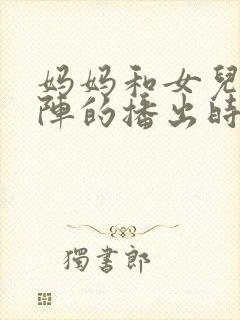 妈妈和女兒
陣的播出時
獨書郎